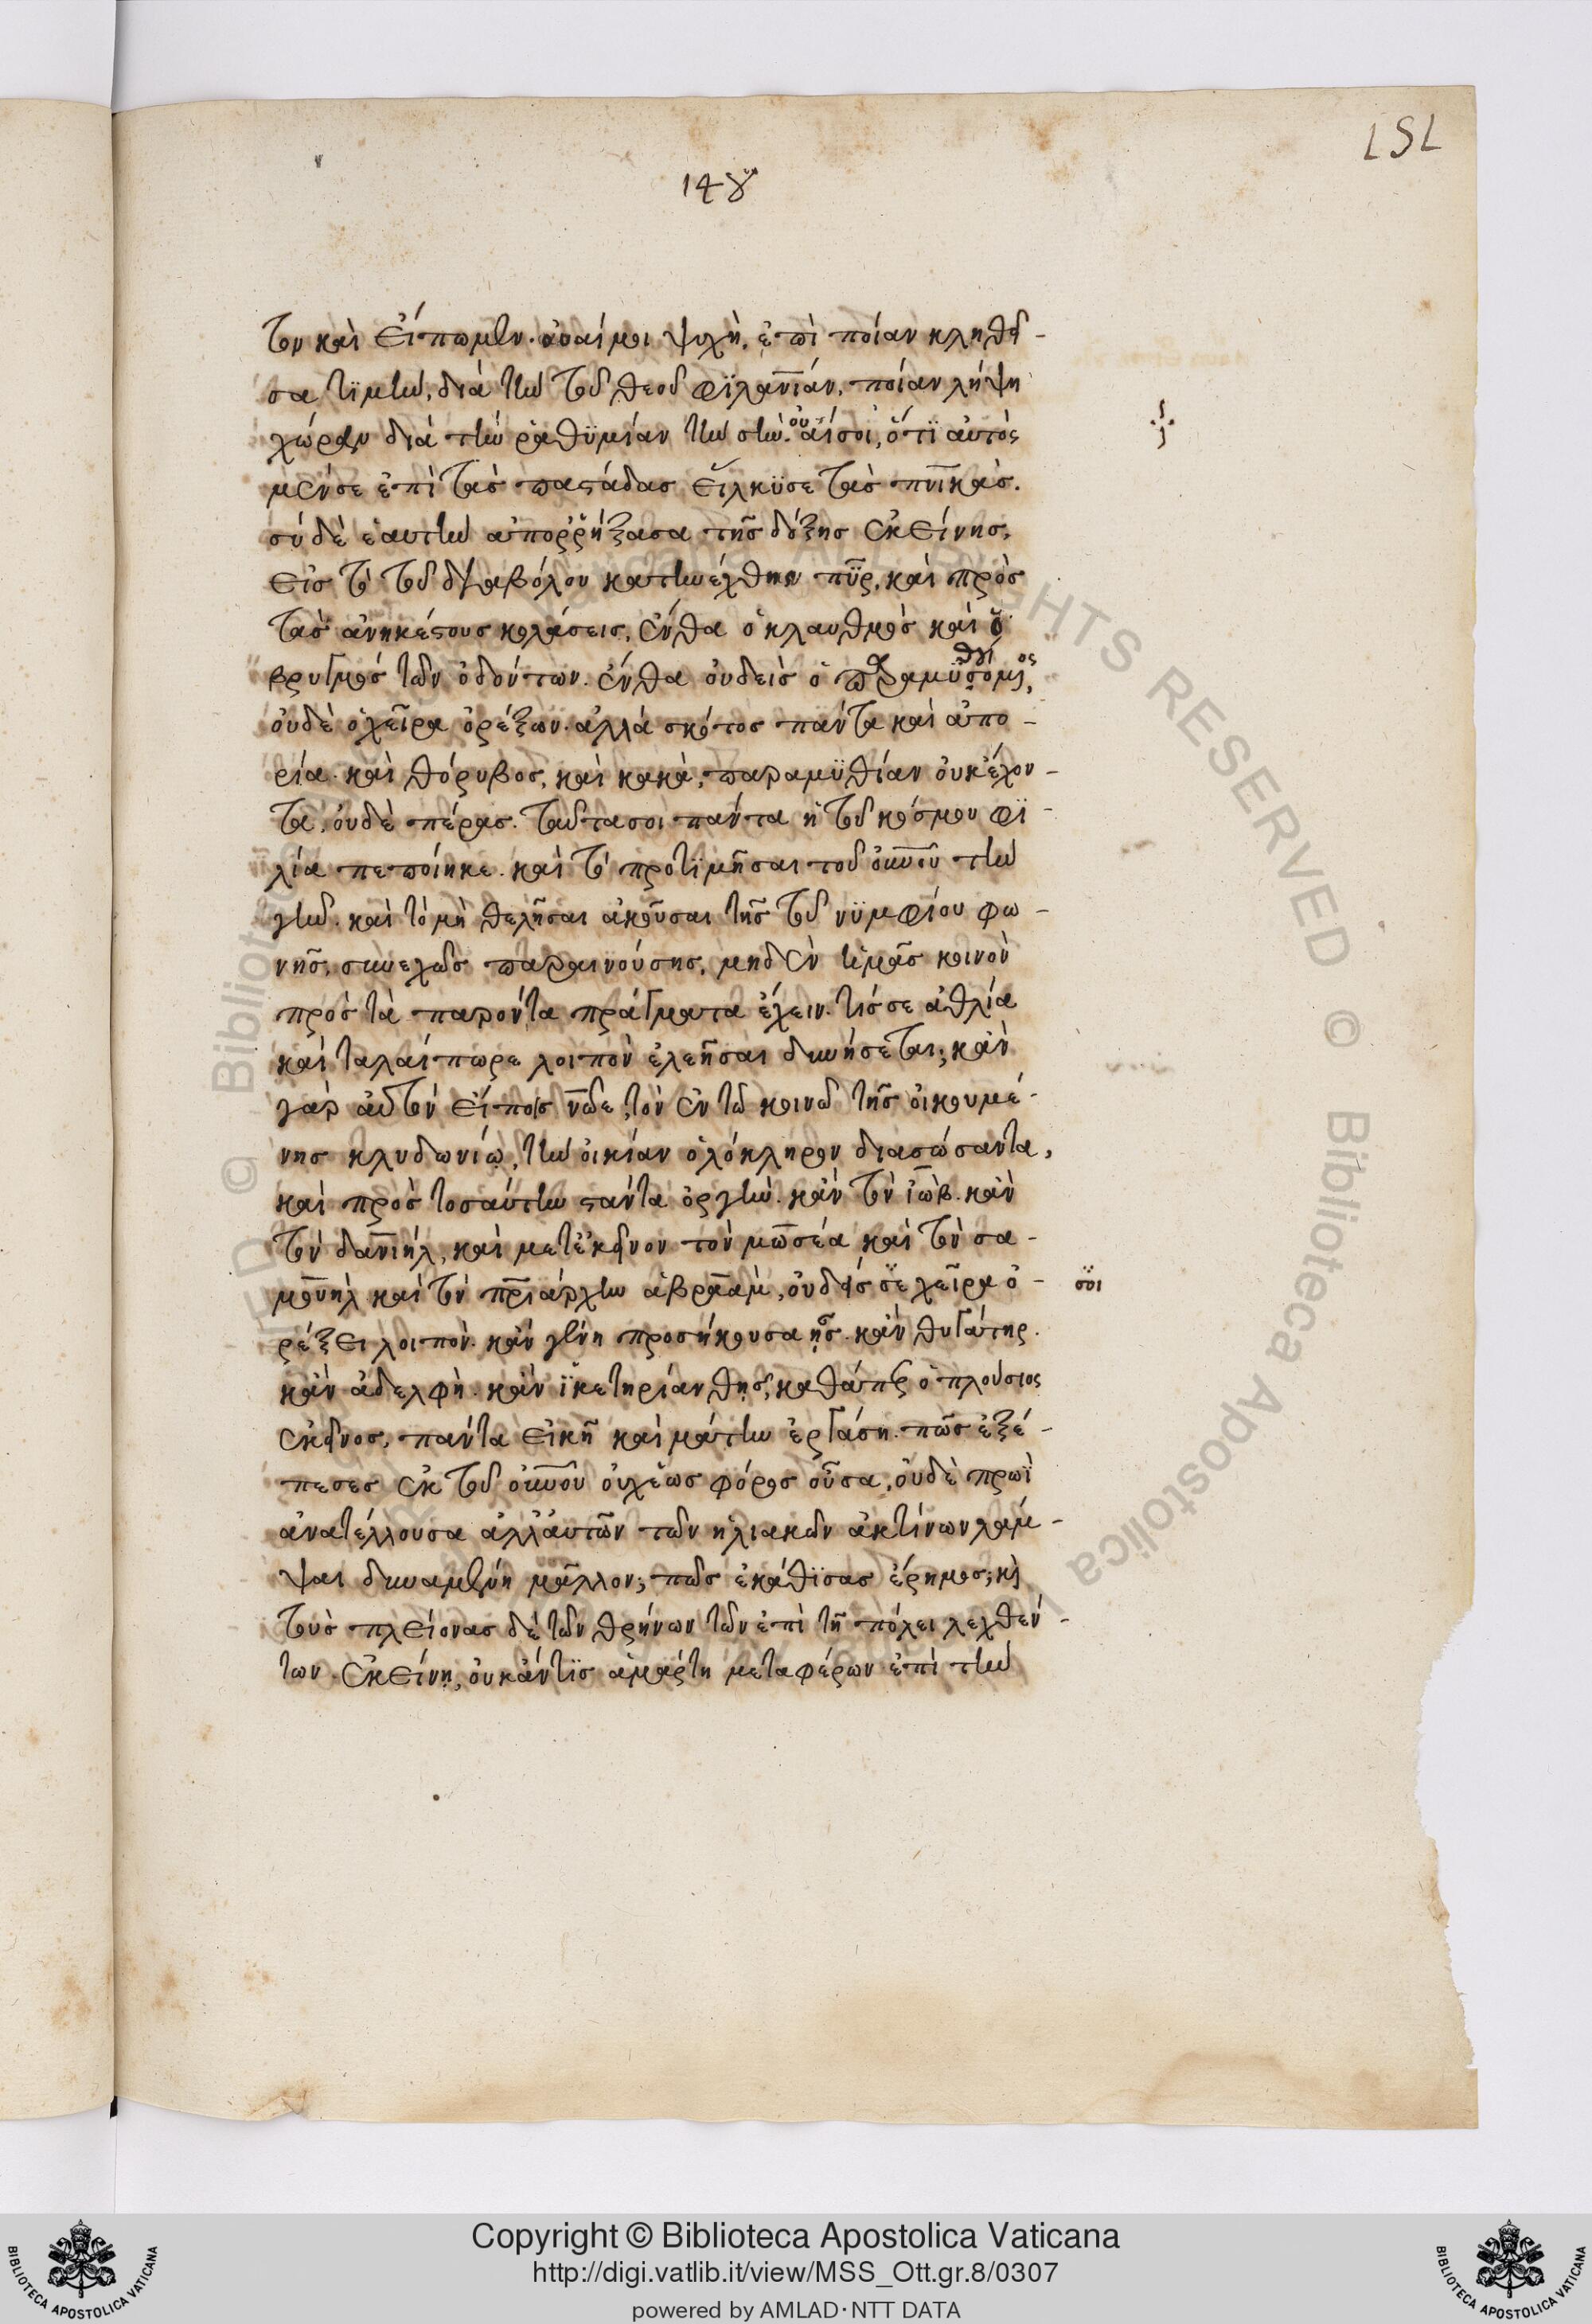 151
148
τον καὶ εἴπωμεν. οὐαί μοι ψυχὴ. ἐπὶ ποίαν κληθεῖ-
σα τιμὴν, διὰ τὴν τοῦ θεοῦ φιλανίαν, ποίαν λήψῃ
χώραν διὰ τὴν ῥαθυμίαν τὴν σὴν. οὐαί σοι, ὅτι αὐτὸς
μέν σε ἐπὶ τὰς παστάδας εἵλκυσε τὰς πνικὰς.
σὺ δὲ ἑαυτὴν ἀπορρήξασα τῆς δόξης ἐκείνης,
εἰς τὸ τοῦ διαβόλου κατηνέχθην πῦρ, καὶ πρὸς
τὰς ἀνηκέστους κολάσεις, ἔνθα ὁ κλαυθμὸς καὶ ὁ
βρυγμὸς τῶν ὀδόντων. ἔνθα οὐδεὶς ὁ παραμυθησόμενος,
οὐδὲ ὁ χεῖρα ὀρέξων. ἀλλὰ σκότος πάντα καὶ ἀπο-
ρία. καὶ θόρυβος, καὶ κακὰ, παραμυθίαν οὐκ ἔχον-
τα, οὐδὲ πέρας. ταῦτα σοι πάντα ἡ τοῦ κόσμου φι-
λία πεποίηκε. καὶ τὸ προτιμῆσαι τοῦ οὐνοῦ τὴν
γῆν. καὶ τὸ μὴ θελῆσαι ἀκοῦσαι τῆς τοῦ νυμφίου φω-
νῆς, συνεχῶς παραινούσης, μηδὲν ἡμᾶς κοινὸν
πρὸς τὰ παρόντα πράγματα ἔχειν. τίς σε ἀθλία
καὶ ταλαίπωρε λοιπὸν ἐλεῆσαι δυνήσεται; κἂν
γὰρ αὐτὸν εἴποις νῶε, τὸν ἐν τῷ κοινῷ τῆς οἰκουμέ-
νης κλυδωνίῳ, τὴν οἰκίαν ὁλόκληρον διασώσαντα,
καὶ πρὸς τοσαύτην στάντα ὀργὴν. κἂν τὸν ἰὼβ. κἂν
τὸν δανιήλ, καὶ μετ' ἐκεῖνον τὸν μωσέα καὶ τὸν σα-
μουὴλ καὶ τὸν πριάρχην ἀβραὰμ, οὐδείς σε χεῖρα ὀ-
σοι
ρέξει λοιπὸν. κἂν γένῃ προσήκουσα ᾖς. κἂν θυγάτηρ.
κἂν ἀδελφὴ. κἂν ἱκετηρίαν θῇς, καθάπερ ὁ πλούσιος
ἐκεῖνος, πάντα εἰκῆ καὶ μάτην ἐργάσῃ. πῶς ἐξέ-
πεσες ἐκ τοῦ οὐνοῦ οὐχ ἑωσφόρος οὖσα, οὐδὲ πρωῒ
ἀνατέλλουσα ἀλλ' αὐτῶν τῶν ἡλιακῶν ἀκτίνων λάμ-
ψαι δυναμένη μᾶλλον; πῶς ἐκάθισας ἔρημος; καὶ
τοὺς πλείονας δὲ τῶν θρήνων τῶν ἐπὶ τῇ πόλει λεχθέν-
των ἐκείνῃ, οὐκ ἄν τις ἁμάρτῃ μεταφέρων ἐπὶ τὴν
Copyright © Biblioteca Apostolica Vaticana
http://digi.vatlib.it/view/MSS_Ott.gr.8/0307
powered by AMLAD·NTT DATA